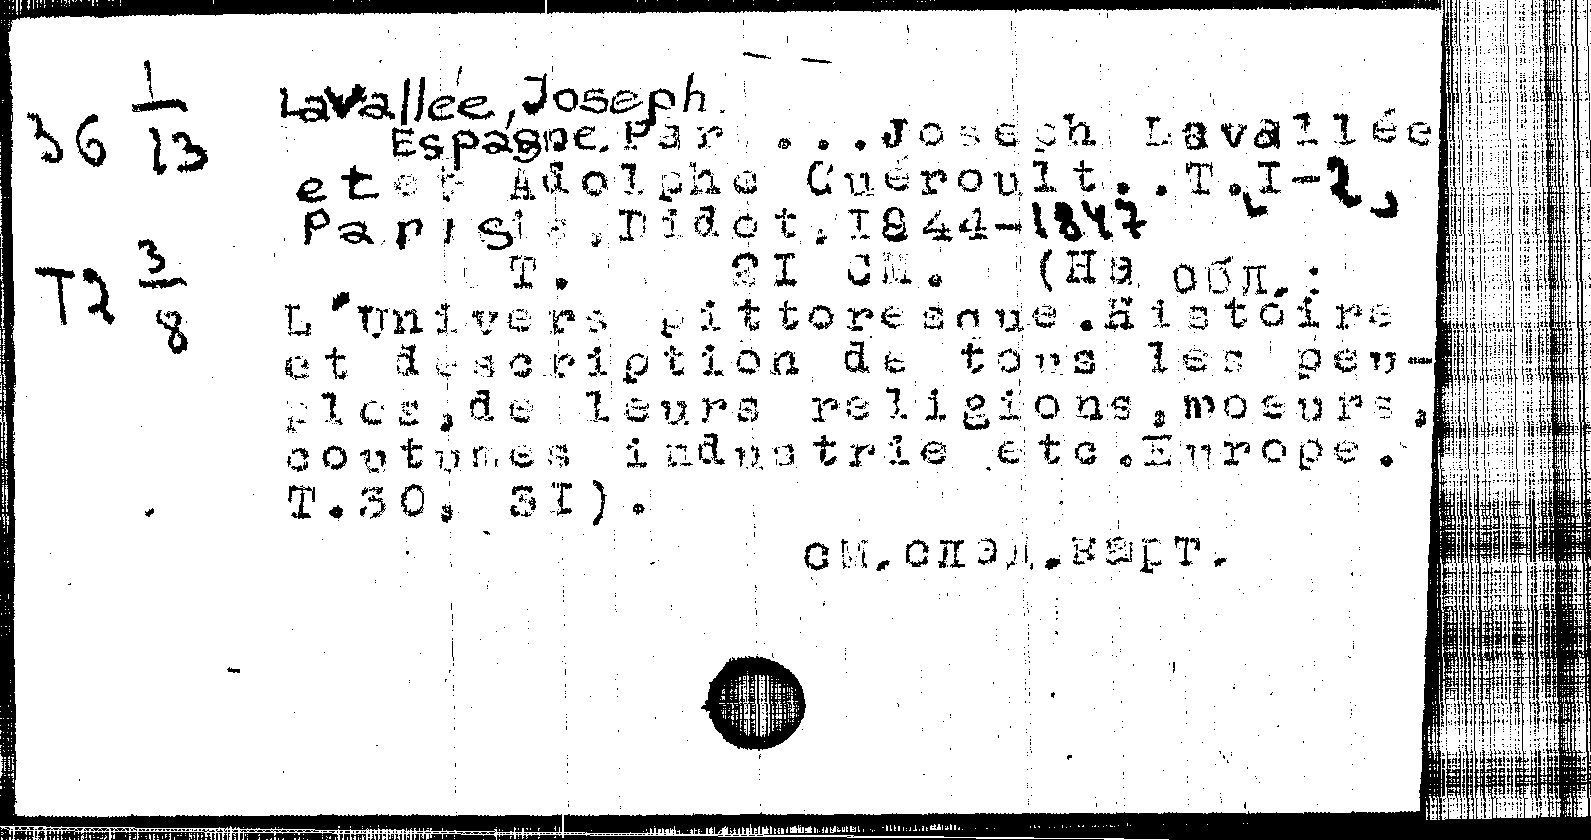 36 1/13
Lavallée, Joseph.
Espagne. Par ...Joseph Lavallée
et Adolphe Guéroult..T.I-2,
Paris, Didot, I844-1847
T. 2I см. (На обл.:
T2 3/8
L'Univers pittoresque.Histoire
et description de tous les peu-
ples,de leurs religions,moeurs,
coutumes industrie etc.Europe.
T.30, 3I).
см.след.карт.